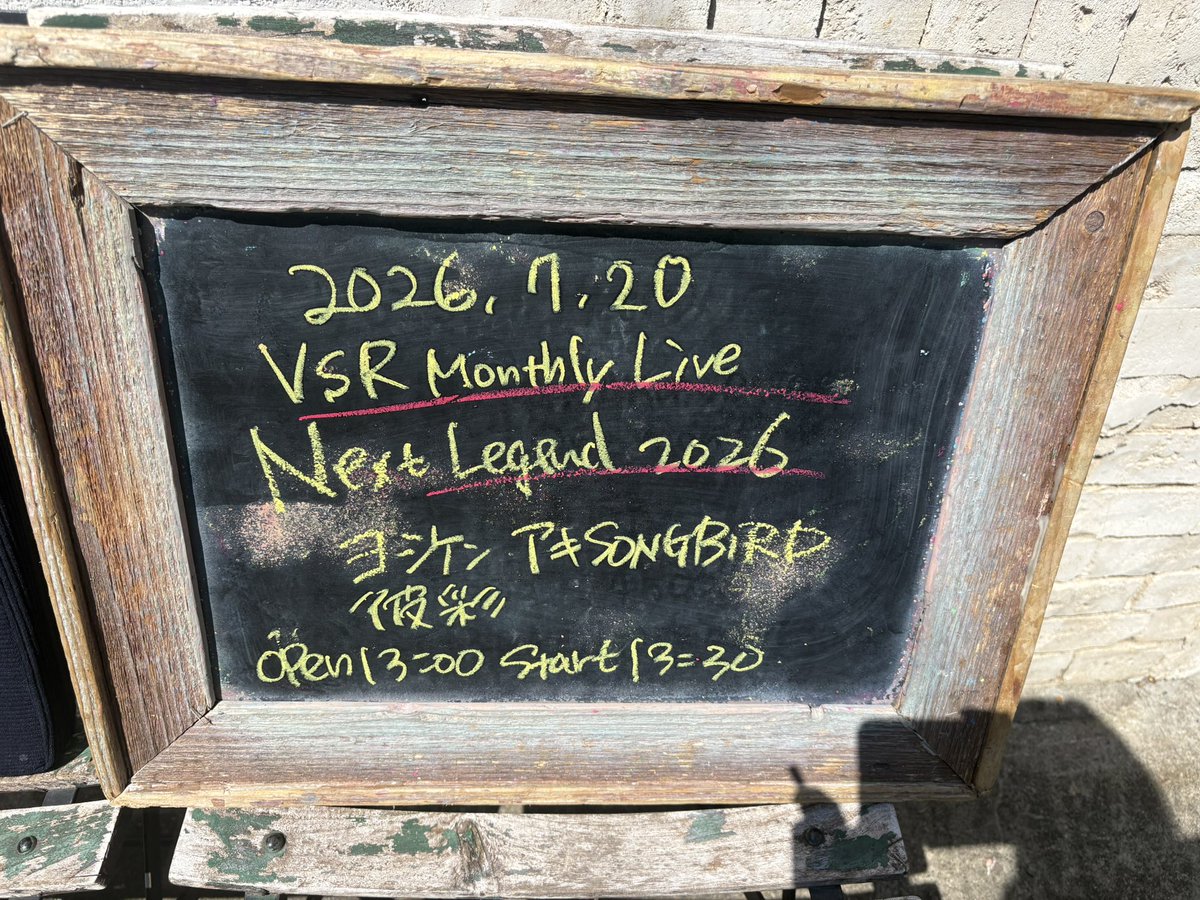 2026.7.20
VSR Monthly Live
Next Legend 2026
ヨシケン アキSONGBIRD
彼彩
open 13:00 Start 13:30